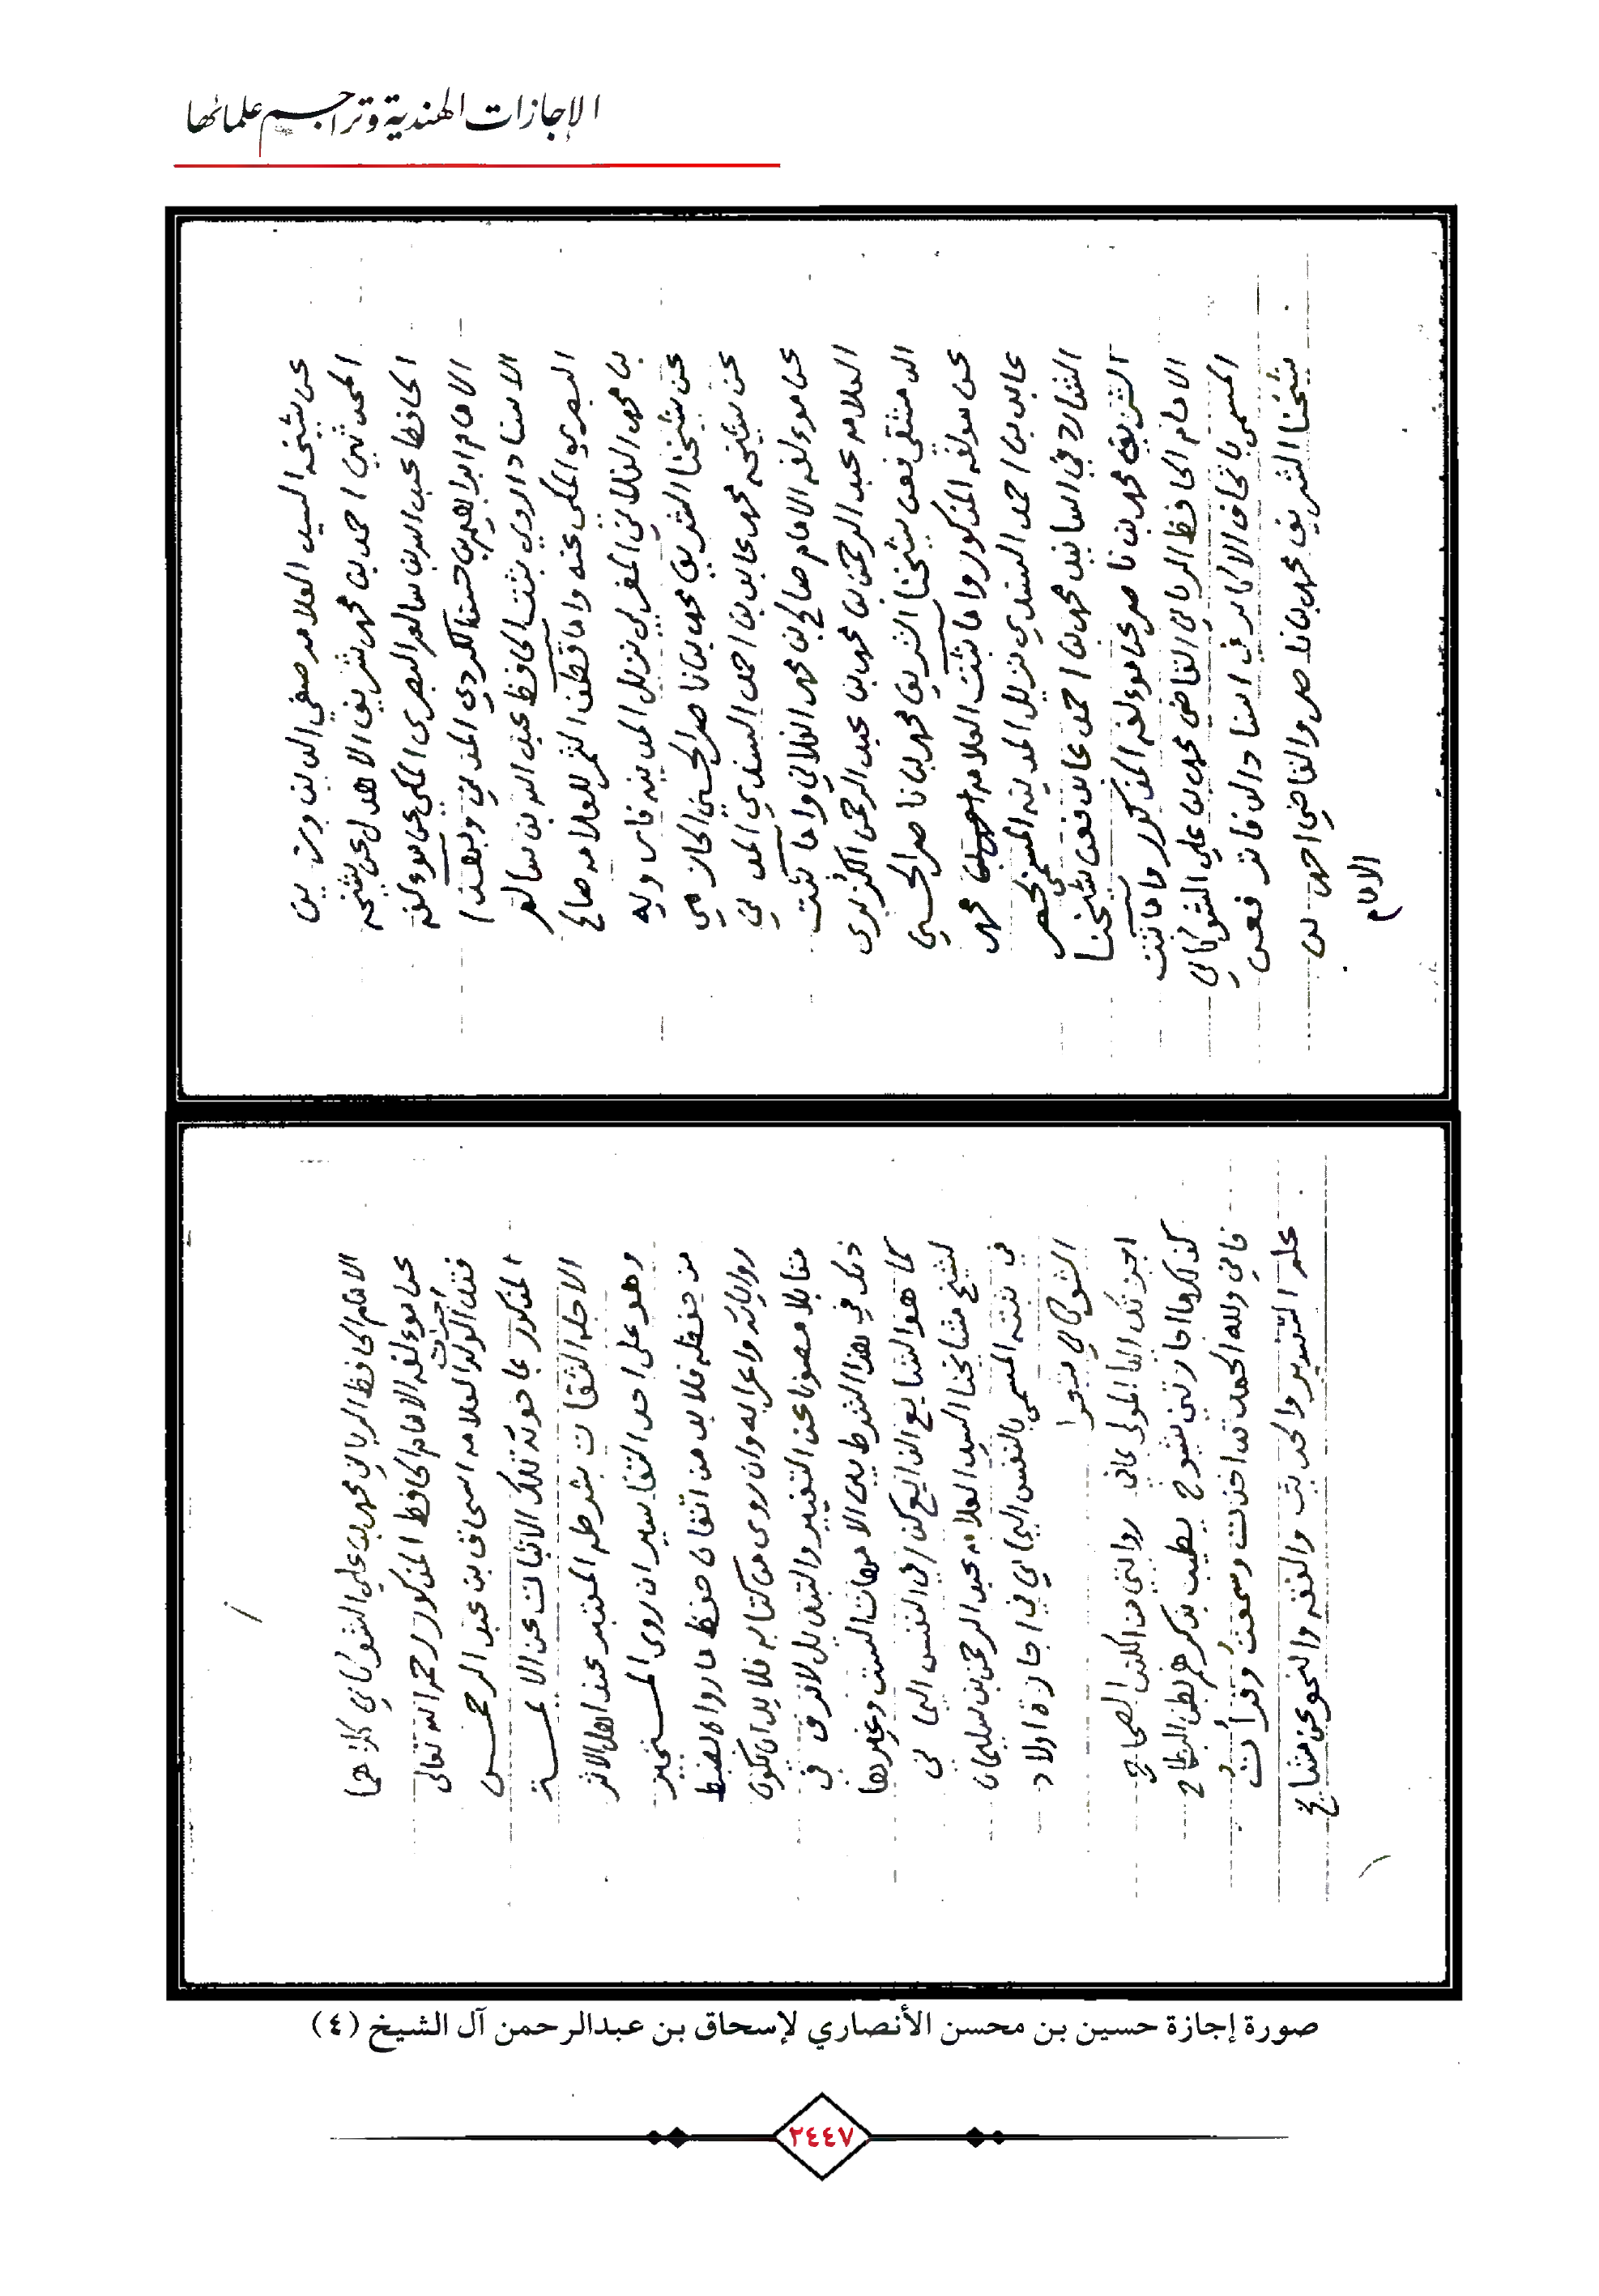 الإجازات الهندية وتراجم علمائها
عن شيخه السيد العلامه صفي الدين ومن بين
المحدثين احمد بن محمد شريف الاهدل عن شيخه
الحافظ عبد الله بن سالم البصرى المكي عن موءلفه
الامام ابراهيم بن حسن الكردي المدني وبهذا
الاسناد اروي ثبت الحافظ عبد الله بن سالم
البصري المكي عنه واما قطف الثمر للعلامه صالح
بن محمد الفلاني المغربي نزيل المدينه فارويه
عن شيخنا الشريف محمد بن ناصر الحسني الحازمي
عن شيخه محمد عابد بن احمد السندي المدني
عن موءلفه الامام صالح بن محمد الفلاني واما ثبت
العلامه عبد الرحمن بن محمد بن عبد الرحمن الكزبري
الدمشقي فعن شيخنا الشريف محمد بن ناصر الحسني
عن مولفه المذكور واما ثبت العلامه محمد
عابد بن احمد السندي نزيل المدينه المسمى بحصر
الشارد في اسانيد محمد بن احمد عابد فعن شيخنا
الشريف محمد بن ناصر عن موءلفه المذكور واما ثبت
الامام الحافظ الرباني القاضي محمد بن علي الشوكاني
المسمى باتحاف الاكابر في اسناد الدفاتر فعن
شيخنا الشريف محمد بن ناصر والقاضي احمد بن
الامام
الامام الحافظ الرباني محمد بن علي الشوكاني كلاهما
عن موءلفه الامام الحافظ المذكور رحمه الله تعالى
فقد اجزت الولد العلامه اسحاق بن عبد الرحمن
المذكور بما حوته تلك الاثبات عن الايمة
الاجله الثقات بشرطه المعتبر عند اهل الاثر
وهو على احد التفاسير ان روى المستجيز
من حفظه فلا بد من اتقان حفظ ما رواه لضبط
رواياته واعرابه وان روى من كتابه فلا بد ان يكون
مقابلا مصونا عن التغيير والتبديل لا فرق في
ذلك في هذا الشرط بين الامهات الست وغيرها
كما هو الشايع الذايع كذا في النفس اليماني
لشيخ مشايخنا السيد العلامه عبد الرحمن بن سليمان
في ثبته المسمى بالنفس اليماني في اجازة اولاد
الشوكاني شعرا
اجزتك ايها المولى بمالي روايتي من الكتب الصحاح
كذلك ما اجازتني شيوخ يطيب بذكرهم بطن البطاح
فاني ولله الحمد قد اخذت وسمعت وقرأت
علم التفسير والحديث والفقه والنحو عن مشايخ
صورة إجازة حسين بن محسن الأنصاري لإسحاق بن عبدالرحمن آل الشيخ (٤)
٢٤٤٧